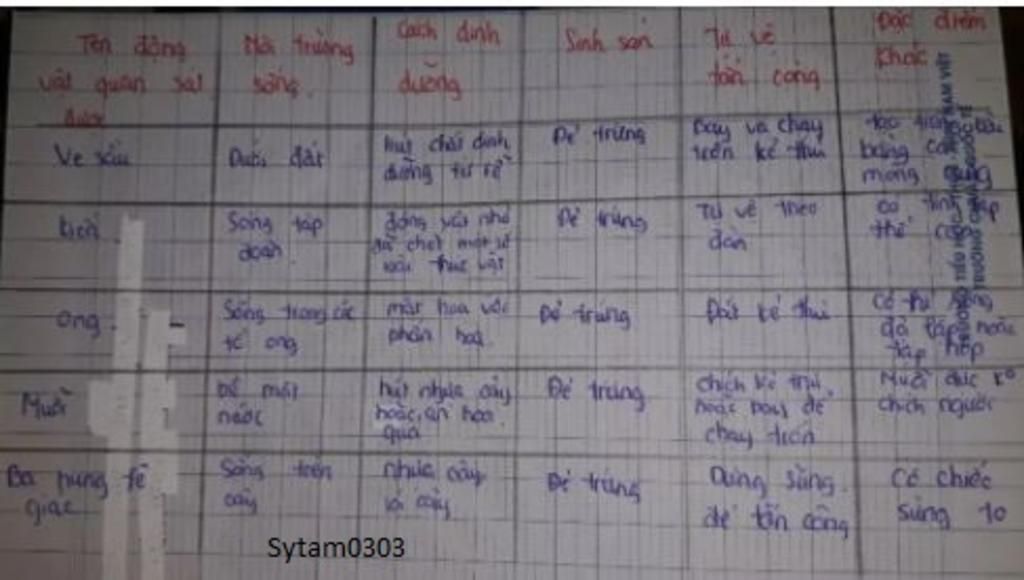 Tên động
vật quan sát
được
Môi trường
sống.
Cách dinh
dưỡng
Sinh sản
Tự vệ
tấn công
Đặc điểm
khác
Ve sầu
Dưới đất
hút chất dinh
dưỡng từ rễ
Đẻ trứng
Bay và chạy
trốn kẻ thù
bằng
mong
kiến
Sống tập
đoàn.
động vật nhỏ
đã chết một số
loài thực vật
Đẻ trứng
Tự vệ theo
đàn
có tính tập
thể cao
ong
Sống trong các
tổ ong
mật hoa với
phấn hoa.
Đẻ trứng
Đốt kẻ thù
Có thể sống
hoặc
tập hợp
Muỗi
bề mặt
nước
hút nhựa cây
hoặc ăn hoa
quả
Đẻ trứng
chích kẻ thù.
hoặc bay để
chạy trốn
Muỗi đực ko
chích người
Bọ hung tê
giác
Sống trên
cây
nhựa cây
lá cây
Đẻ trứng
Dùng sừng.
để tấn công
Có chiếc
sừng to
TRƯỜNG TIỂU HỌC
NAM VIỆT
QUỐC TẾ
Sytam0303